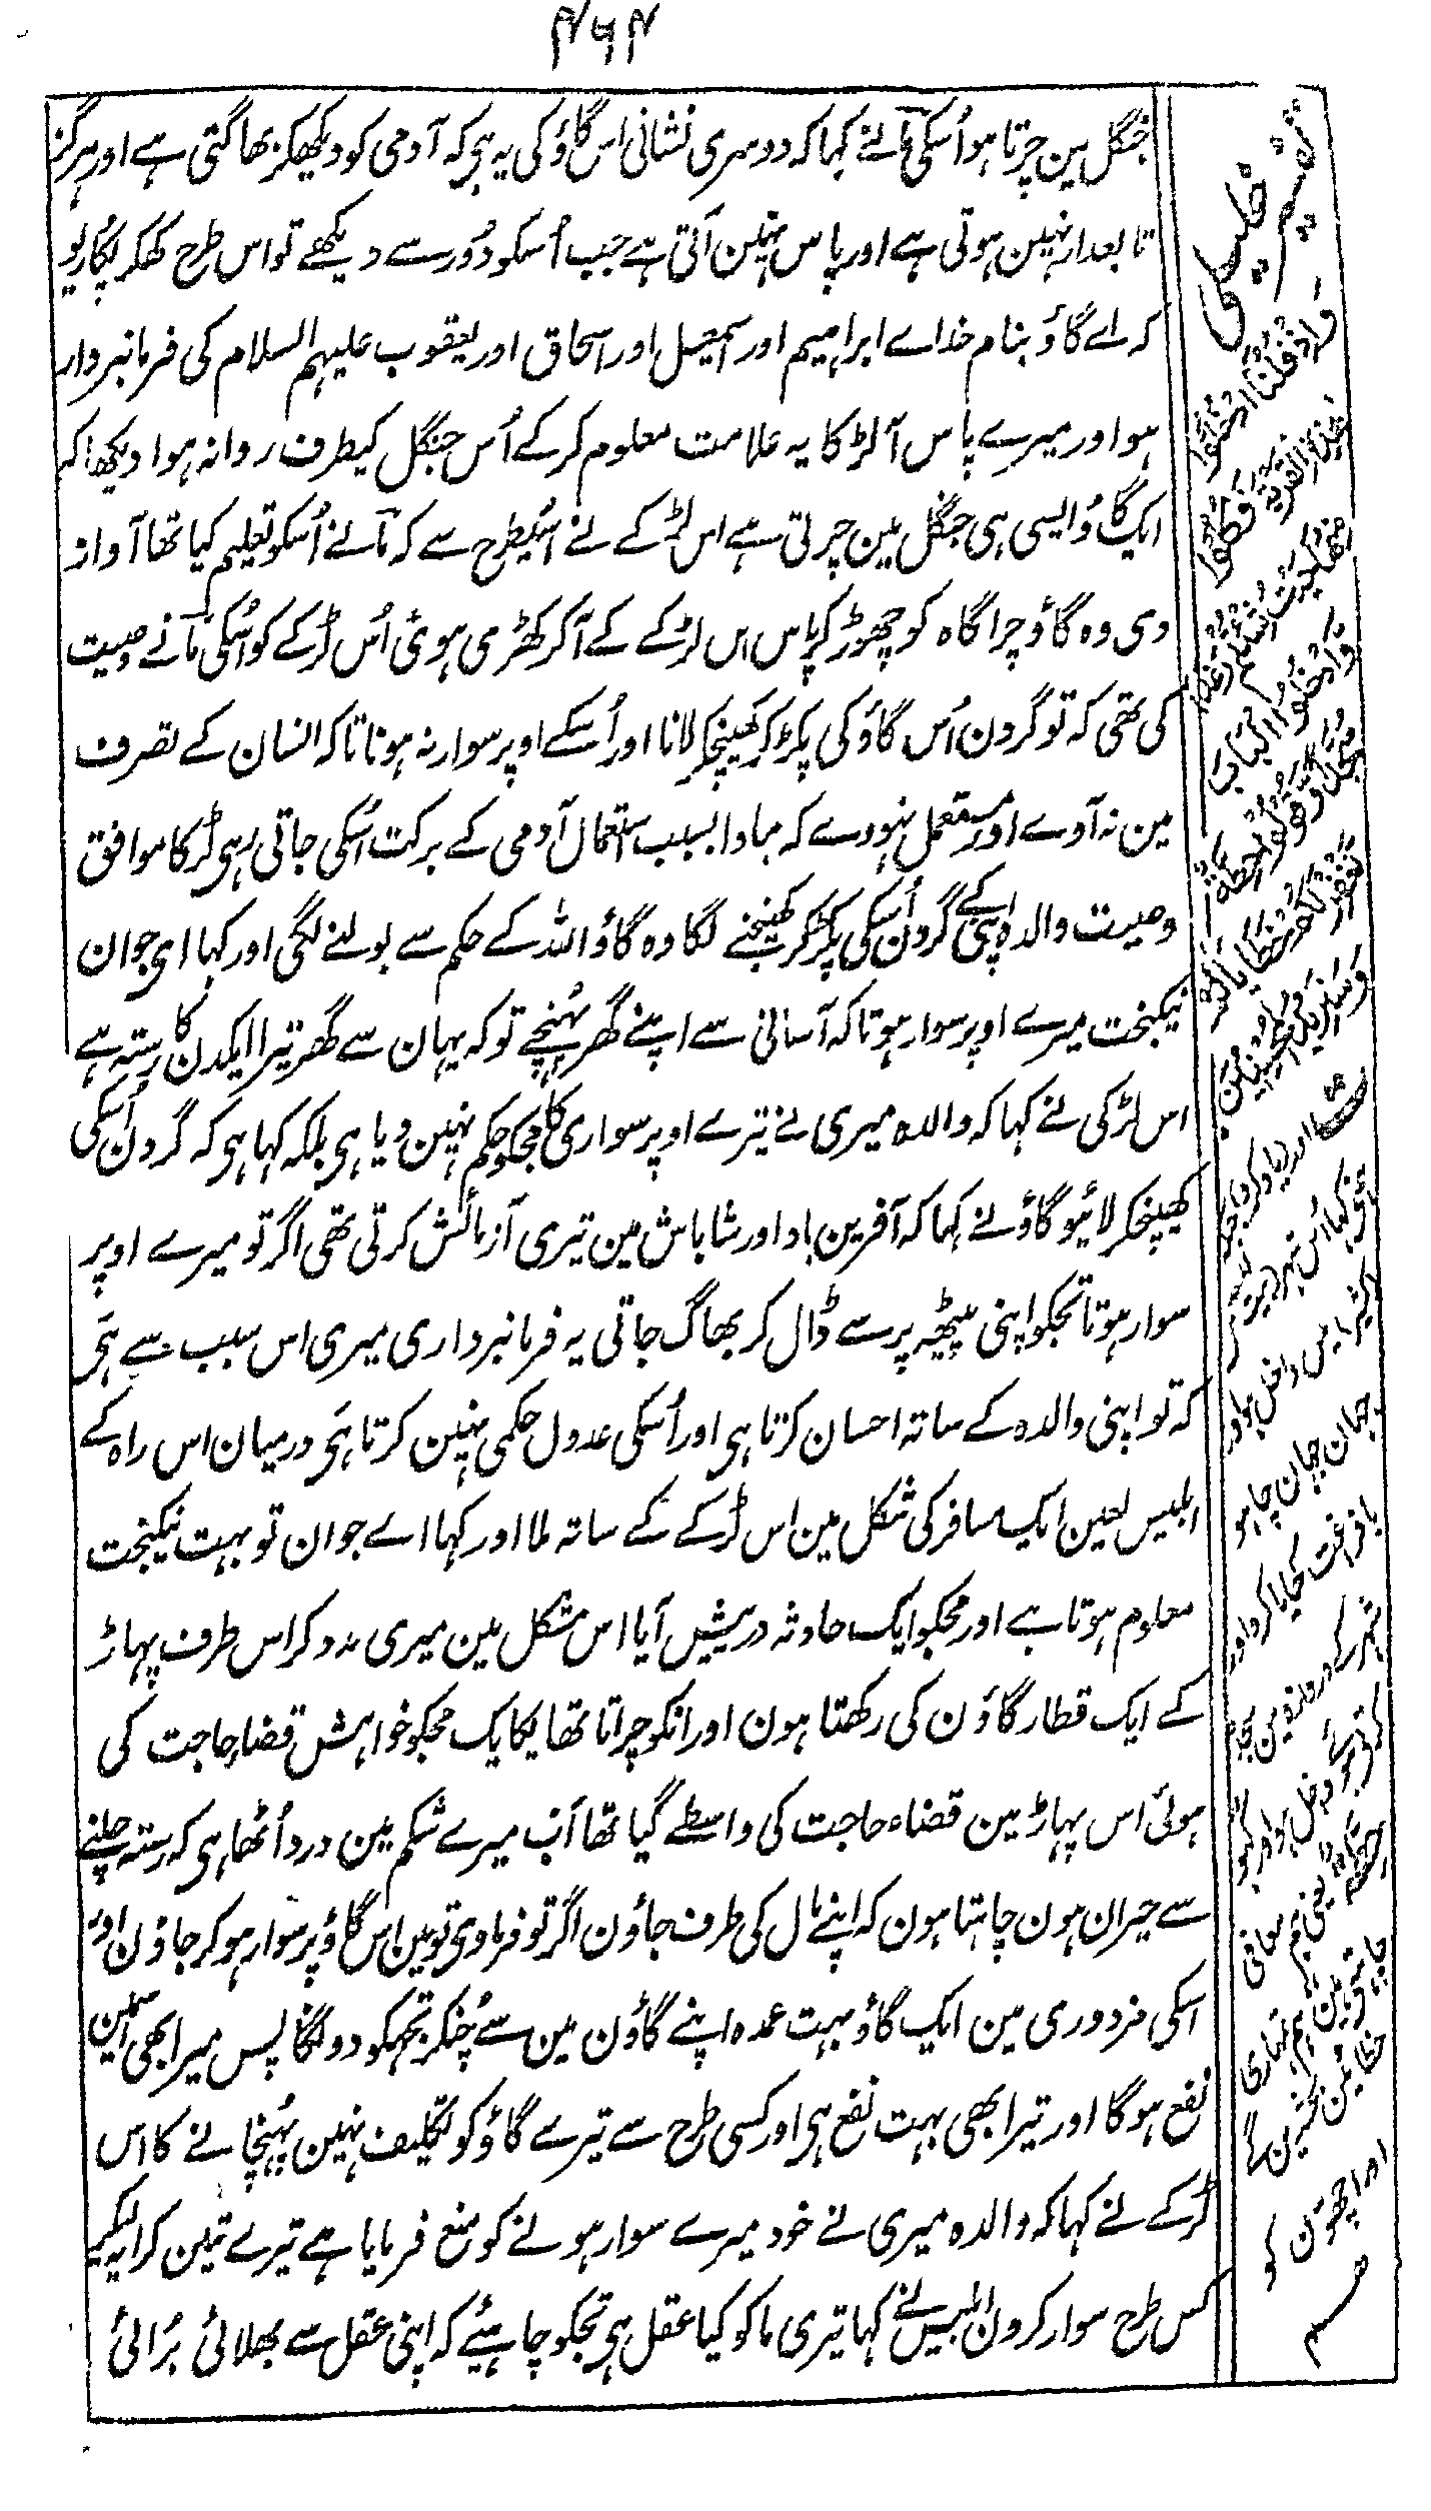 ۴۶۴
جنگل مین چرتا ہو اُسکی مانے کہا کہ دوسری نشانی اس گاؤ کی یہ ہی کہ آدمی کو دیکھکر بھاگتی ہے اور ہرگز
تابعدار نہین ہوتی ہے اور پاس نہین آتی ہے جب اُسکو دُور سے دیکھے تو اس طرح کھکر پکاریو
کہ اے گاؤ بنام خداے ابراہیم اور اسمٰعیل اور اسحاق اور یعقوب علیہم السلام کی فرمانبردار
ہو اور میرے پاس آ لڑکا یہ علامت معلوم کرکے اُس جنگل کیطرف روانہ ہوا دیکھا کہ
ایک گاؤ ایسی ہی جنگل مین چرتی ہے اس لڑکے نے اُسیطرح سے کہ مانے اُسکو تعلیم کیا تھا آواز
دی وہ گاؤ چراگاہ کو چھوڑ کر پاس اس لڑکے کے آکر کھڑی ہوئی اُس لڑکے کو اُسکی مانے وصیت
کی تھی کہ تو گردن اُس گاؤ کی پکڑ کر کھینچکر لانا اور اُسکے اوپر سوار نہ ہونا تاکہ انسان کے تصرف
مین نہ آوے اور مستعمل نہووے کہ مبادا بسبب استعمال آدمی کے برکت اُسکی جاتی رہی لڑکا موافق
وصیت والدہ اپنی کے گردن اُسکی پکڑ کر کھینچنے لگا وہ گاؤ اللہ کے حکم سے بولنے لگی اور کہا ای جوان
نیکبخت میرے اوپر سوار ہو تاکہ آسانی سے اپنے گھر پہُنچے تو کہ یہان سے گھر تیرا ایکدن کا رستہ ہے
اس لڑکی نے کہا کہ والدہ میری نے تیرے اوپر سواری کا مجکو حکم نہین دیا ہی بلکہ کہا ہی کہ گردن اُسکی
کھینچکر لائیو گاؤ نے کہا کہ آفرین باد اور شاباش مین تیری آزمائش کرتی تھی اگر تو میرے اوپر
سوار ہوتا تجکو اپنی پیٹھہ پر سے ڈال کر بھاگ جاتی یہ فرمانبرداری میری اس سبب سے ہَی
کہ تو اپنی والدہ کے ساتہ احسان کرتا ہی اور اُسکی عدول حکمی نہین کرتا ہَی درمیان اس راہ کے
ابلیس لعین ایک مسافر کی شکل مین اس لڑکے کے ساتہ ملا اور کہا اے جوان تو بہت نیکبخت
معلوم ہوتا ہے اور مجکو ایک حادثہ درپیش آیا اس مشکل مین میری مدد کر اس طرف پہاڑ
کے ایک قطار گاؤن کی رکھتا ہون اور انکو چراتا تھا یکایک مجکو خواہش قضاءحاجت کی
ہوئی اس پہاڑ مین قضاء حاجت کی واسطے گیا تھا اَب میرے شکم مین درد اُٹھا ہی کہ رستہ چلنے
سے حیران ہون چاہتا ہون کہ اپنے مال کی طرف جاؤن اگر تو فرماوی تو مین اس گاؤ پر سوار ہوکر جاؤن اور
اسکی مزدوری مین ایک گاؤ بہت عمدہ اپنے گاؤن مین سے چُنکر تجھکو دونگا پس میرا بھی اسمین
نفع ہوگا اور تیرا بھی بہت نفع ہی اور کسی طرح سے تیرے گاؤ کو تکلیف نہین پہُنچانے کا اس
لڑکے نے کہا کہ والدہ میری نے خود میرے سوار ہونے کو منع فرمایا ہے تیرے تئین کرایہ لیکر
کس طرح سوار کرون ابلیس نے کہا تیری ماکو کیا عقل ہی تجکو چاہئیے کہ اپنی عقل سے بھلائی بُرائی
وَاِذْ قُلْنَا ادْخُلُوْا
هٰذِهِ الْقَرْيَةَ فَكُلُوْا
مِنْهَا حَيْثُ شِئْتُمْ رَغَدًا
وَّادْخُلُوا الْبَابَ
سُجَّدًا وَّقُوْلُوْا حِطَّةٌ
نَّغْفِرْ لَكُمْ خَطٰيٰكُمْ
وَسَنَزِيْدُ الْمُحْسِنِيْنَ